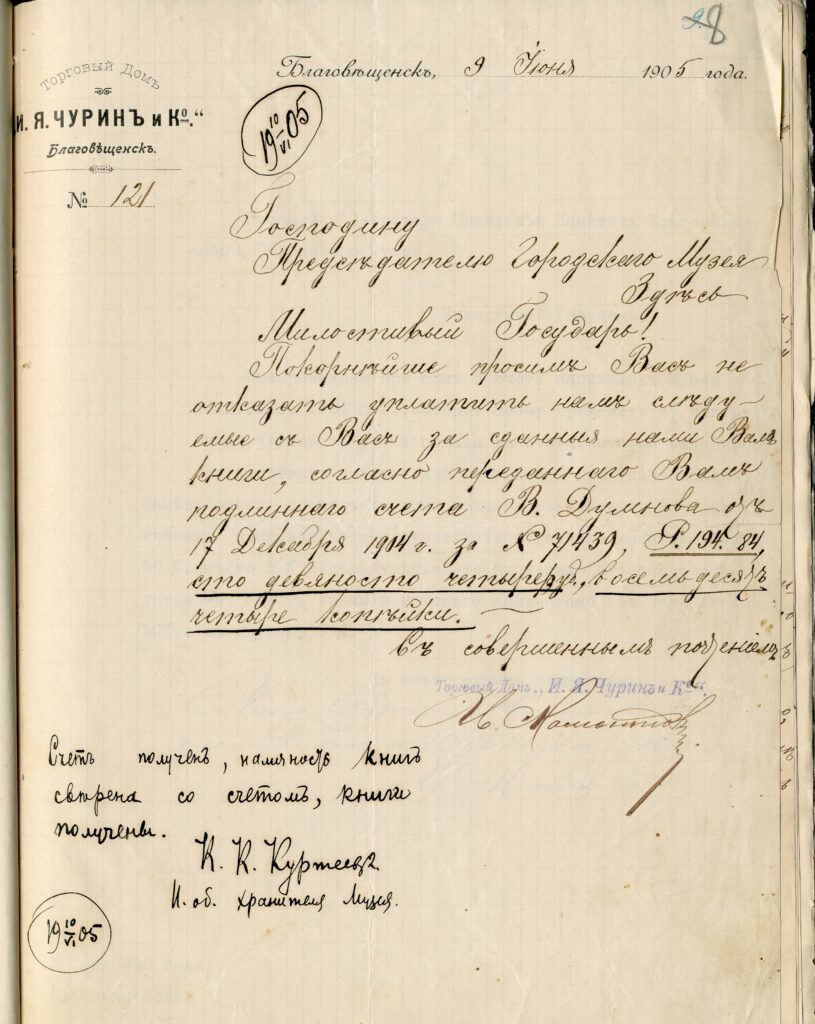 28
Торговый Домъ
„И. Я. ЧУРИНЪ и Ко.“
Благовѣщенскъ.
№ 121
Благовѣщенскъ, 9 Іюня 1905 года.
19 10/VI 05
Господину
Предсѣдателю Городскаго Музея
Здѣсь
Милостивый Государь!
Покорнѣйше просимъ Васъ не
отказать уплатить намъ слѣду-
емые съ Васъ за сданныя нами Вамъ
книги, согласно переданнаго Вамъ
подлиннаго счета В. Думнова отъ
17 Декабря 1904 г. за № 71439, Р. 194. 84,
сто девяносто четыре руб., восемьдесятъ
четыре копѣйки. —
Съ совершеннымъ почтеніемъ
Торговый Домъ „И. Я. Чуринъ и Ко“.
Счетъ полученъ, наличность книгъ
свѣрена со счетомъ, книги
получены.
К. К. Куртеевъ.
И. об. хранителя Музея.
19 10/VI 05